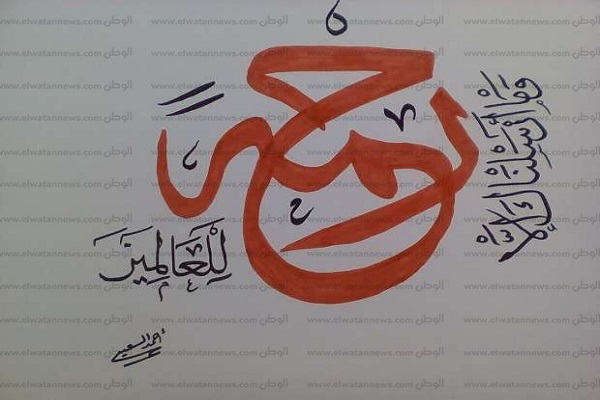 وَمَا أَرْسَلْنَاكَ إِلَّا
رحمةً
لِلْعَالَمِينَ
الوطن www.elwatannews.com